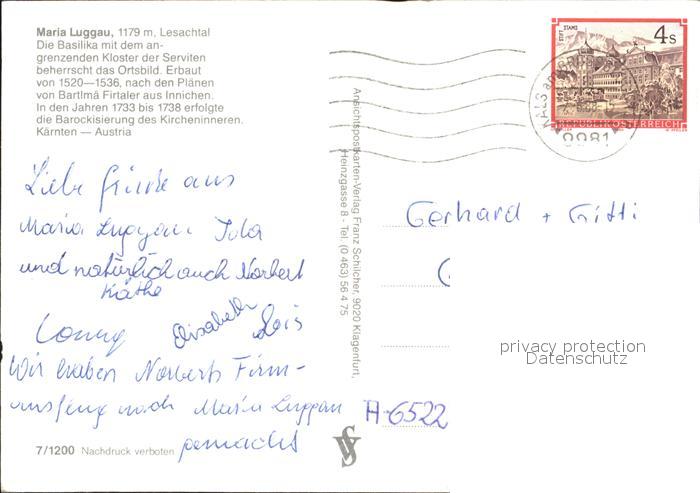 Maria Luggau, 1179 m, Lesachtal
Die Basilika mit dem an-
grenzenden Kloster der Serviten
beherrscht das Ortsbild. Erbaut
von 1520—1536, nach den Plänen
von Bartlmä Firtaler aus Innichen.
In den Jahren 1733 bis 1738 erfolgte
die Barockisierung des Kircheninneren.
Kärnten — Austria
Liebe Grüße aus
Maria Luggau
und natürlich auch Norbert
Käthe
Conny Elisabeth Lois
Wir haben Norberts Firm-
ausflug nach Maria Luggau
gemacht
7/1200 Nachdruck verboten
Ansichtspostkarten-Verlag Franz Schilcher, 9020 Klagenfurt,
Heinzgasse 8 - Tel. (0 463) 56 4 75
STIFT STAMS
4 S
REPUBLIK ÖSTERREICH
KALS am
9981
Gerhard + Gitti
privacy protection
Datenschutz
A-6522